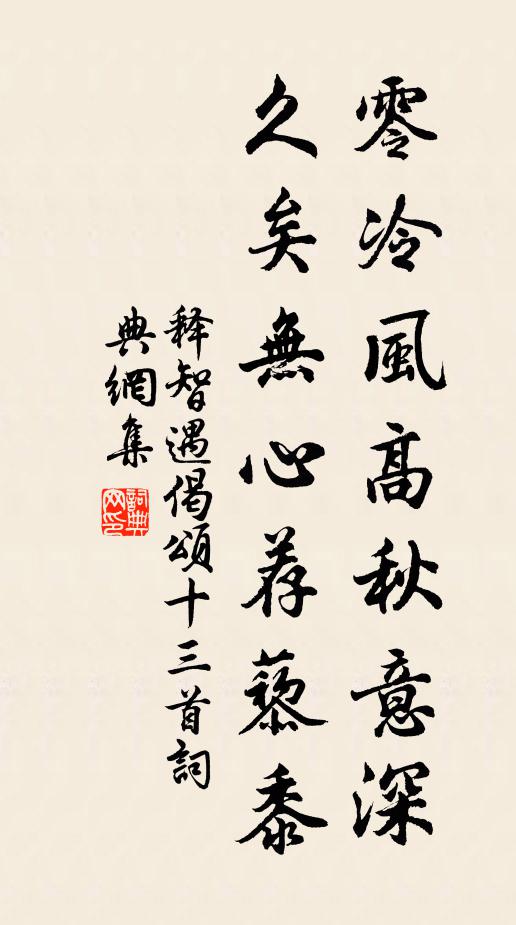 零冷風高秋意深
久矣無心荐藜黍
释智遇偈頌十三首詞
典網集
詞典
网印